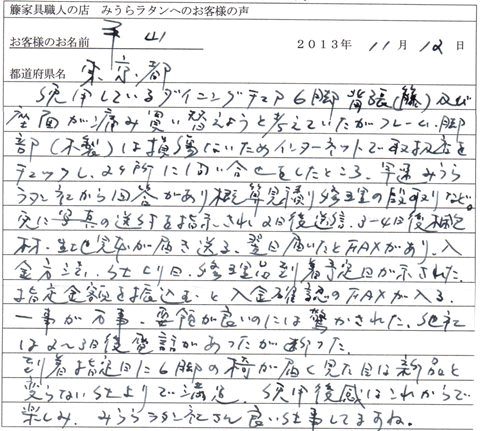 籐家具職人の店 みうらラタンへのお客様の声
お客様のお名前 平山 2013年 11月 12日
都道府県名 東京都
使用しているダイニングチェア6脚 背張(籐)及び
座面が痛み買い替えようと考えていたがフレーム、脚
部(木製)は損傷ないためインターネットで取扱店を
チェックし、2ヶ所に問い合せをしたところ、早速みうら
ラタン社から回答があり概算見積り修理の段取りなど。
先に写真の送付を指示され2日後返信、3〜4日後
材、生地見本が届き送る。翌日届いたとFAXがあり、入
金方法、仕上り日、修理品到着予定日が示された。
指定金額を振込むと入金確認のFAXが入る。
一事が万事、要領が良いのには驚かされた。他社
は2〜3日後電話があったが断った。
到着指定日に6脚の椅が届く見た目は新品と
変らない仕上りで満足。使用後感はこれからで
楽しみ。みうらラタン社さん良い仕事してますね。